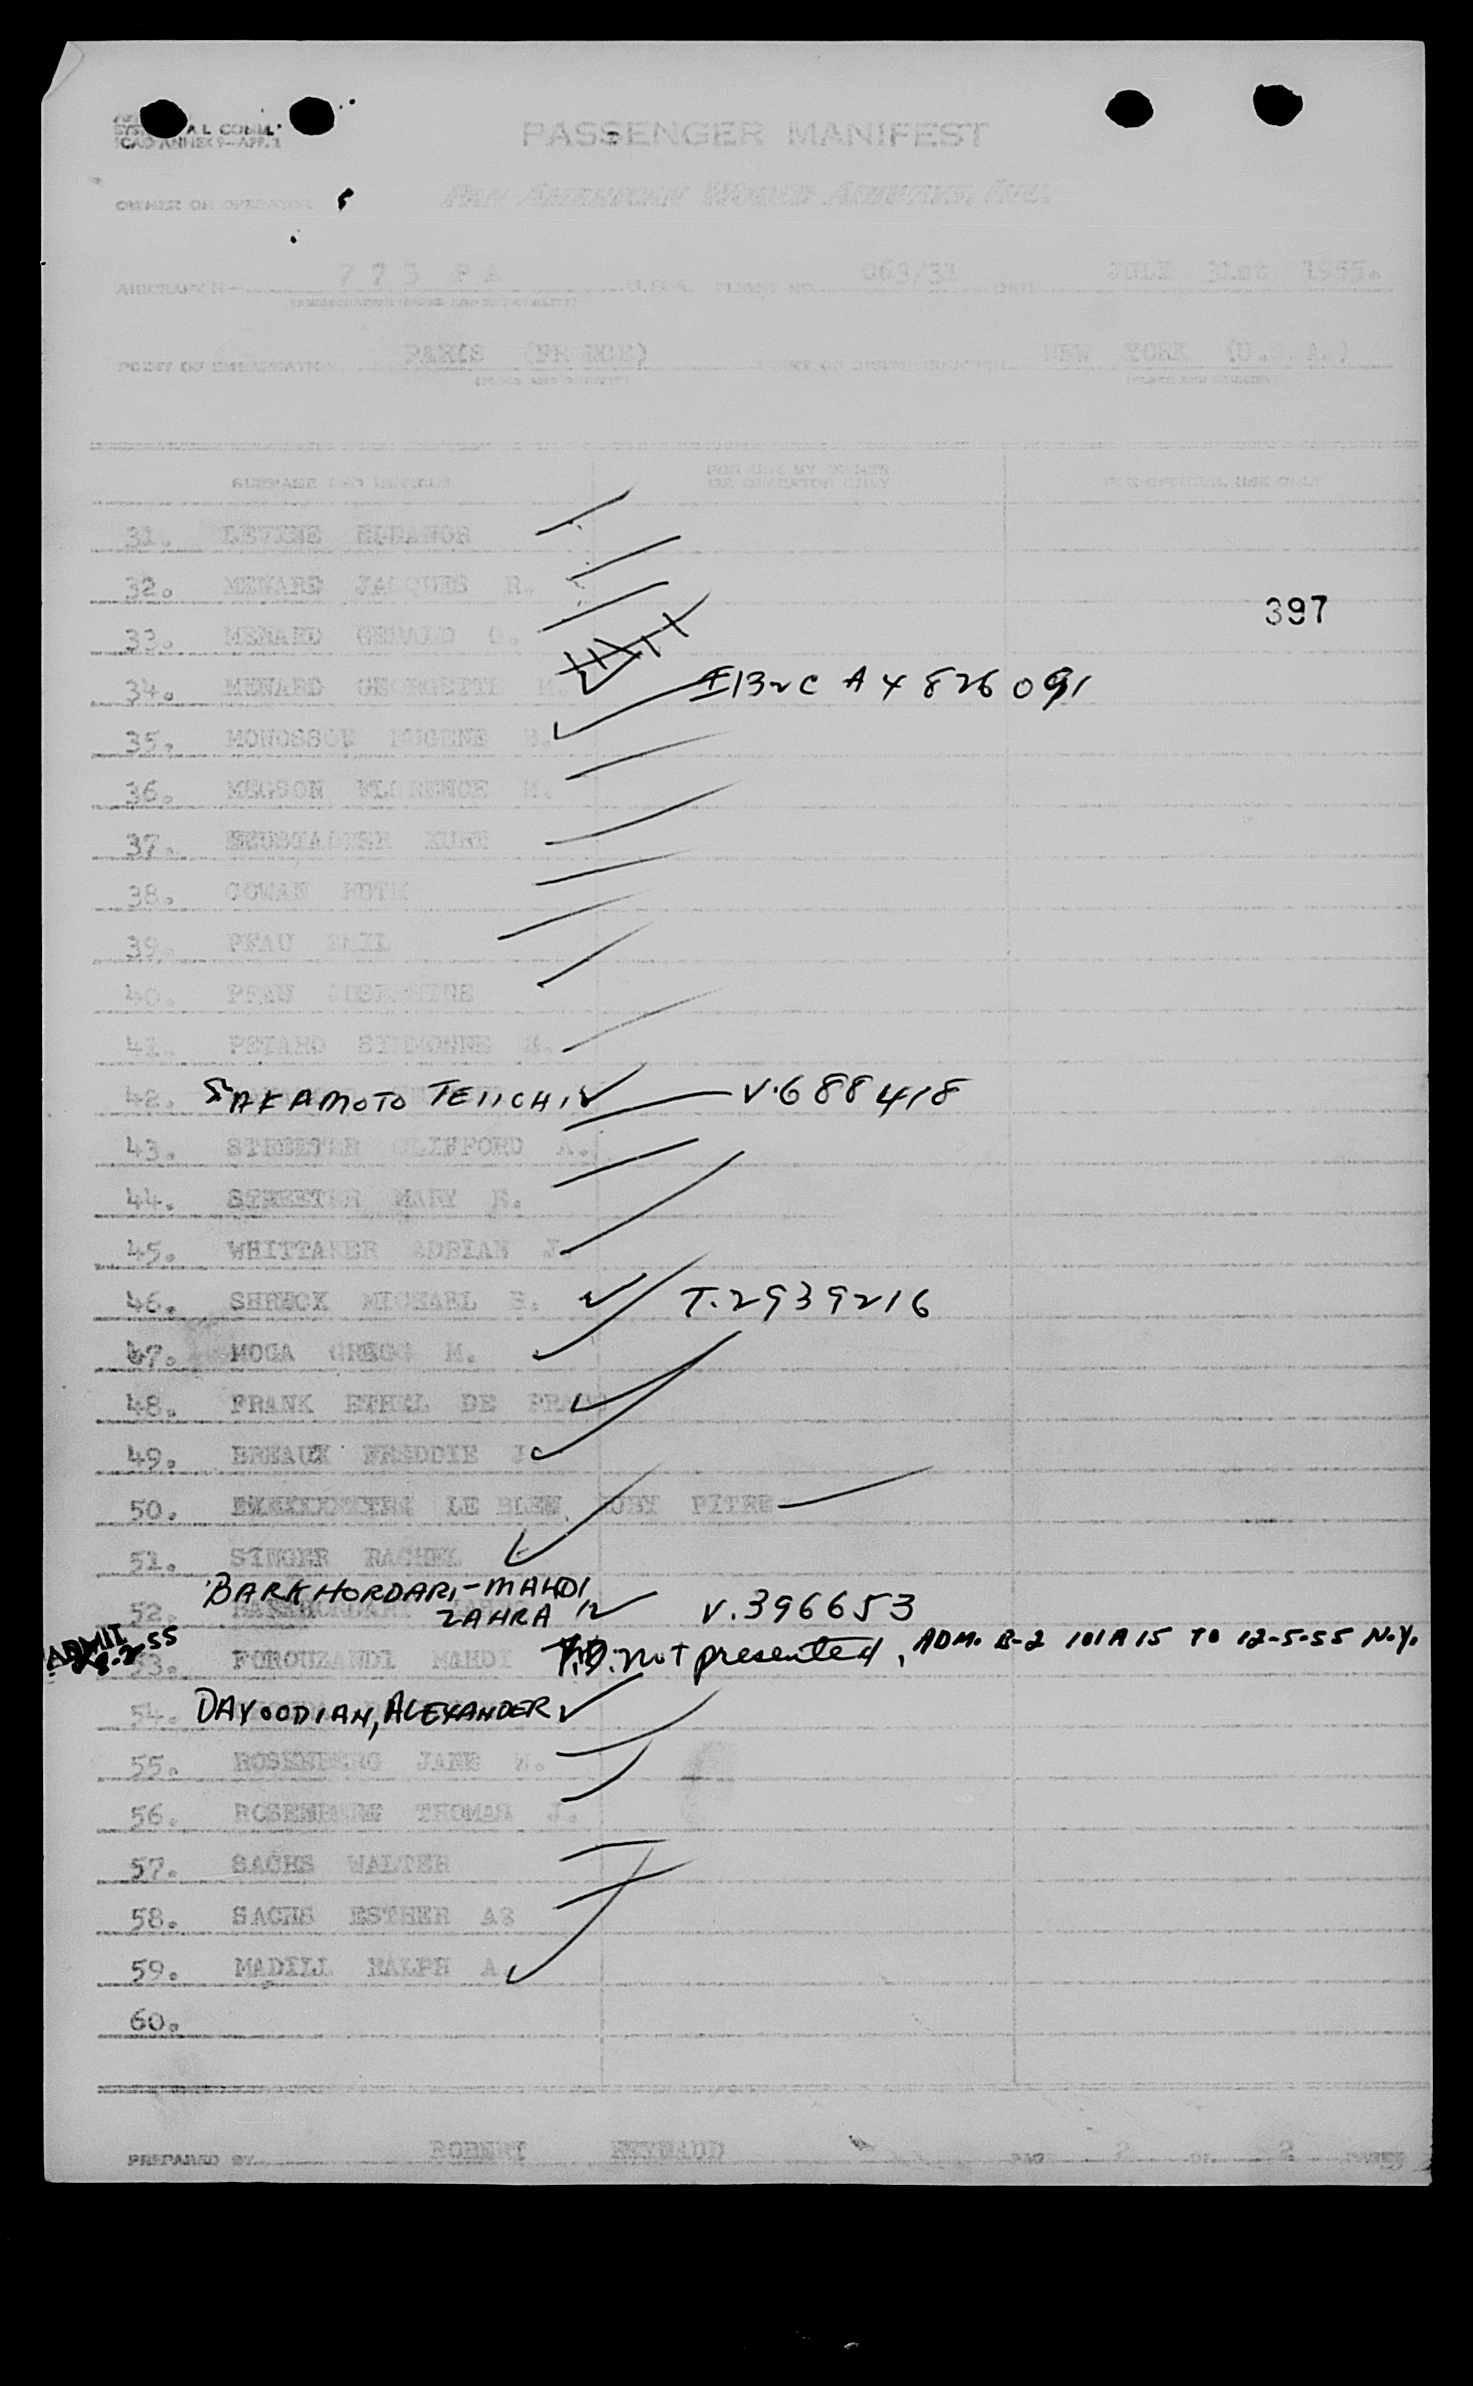 PASSENGER MANIFEST
OWNER OR OPERATOR PAN AMERICAN WORLD AIRWAYS, INC.
773 PA U.S.A. FLIGHT NO. 069/31 JULY 31st 1955.
POINT OF EMBARKATION PARIS (FRANCE) NEW YORK (U.S.A.)
SURNAME AND INITIALS FOR USE BY OWNER OR OPERATOR ONLY FOR OFFICIAL USE ONLY
31. LEVINE ELEANOR
32. MENARD JACQUES R.
397
33. MENARD GERALD G.
34. MENARD GEORGETTE M. I132C A4826091
35. MONOSSON EUGENE
36. MEGSON FLORENCE M.
37. NEUSTADTER KURT
38. COWAN RUTH
39. PFAU EMIL
40. PFAU
41. PETARD SIMMONNE
42. SAKAMOTO TEIICHI V.688418
43. STREETER CLIFFORD A.
44. STREETER MARY E.
45. WHITTAKER ADRIAN J.
46. SHRECK MICHAEL E. T.2939216
47. MOGA GREGG M.
48. FRANK ETHEL DE
49. BREAUX FREDDIE J
50. LE BLEU RUBY PITRE
51. SINGER RACHEL
BARKHORDARI-MAHDI
52. ZAHRA V.396653
ADMIT 55
53. FOROUZANDI MAHDI not presented, ADM. B-2 101A15 TO 12-5-55 N.Y.
54. DAVOODIAN, ALEXANDER
55. ROSENBERG JANE
56. THOMAS J.
57. SACHS WALTER
58. SACHS ESTHER AS
59. MADILL RALPH A
60.
PREPARED BY ROBERT REYNAUD PAGE 2 OF 2 PAGES